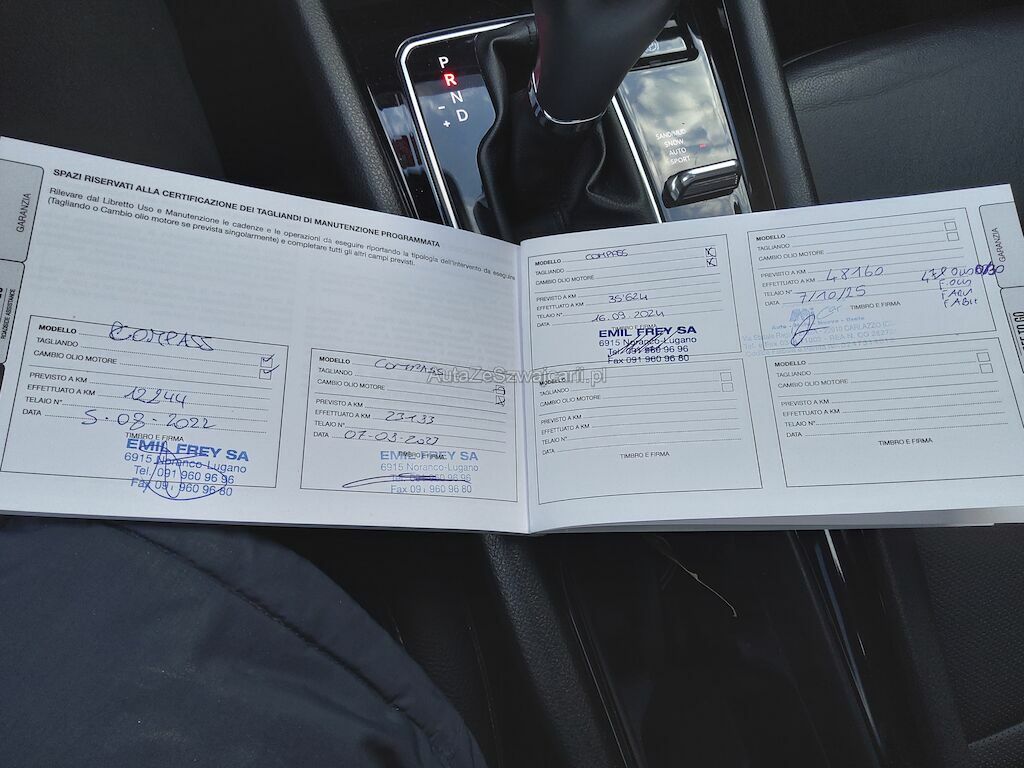 P
R
N
D
-
+
SAND/MUD
SNOW
AUTO
SPORT
GARANZIA
ROADSIDE ASSISTANCE
SPAZI RISERVATI ALLA CERTIFICAZIONE DEI TAGLIANDI DI MANUTENZIONE PROGRAMMATA
Rilevare dal Libretto Uso e Manutenzione le cadenze e le operazioni da eseguire riportando la tipologia dell'intervento da eseguire
(Tagliando o Cambio olio motore se prevista singolarmente) e completare tutti gli altri campi previsti.
MODELLO COMPASS
TAGLIANDO
CAMBIO OLIO MOTORE
PREVISTO A KM
EFFETTUATO A KM 12244
TELAIO N°
DATA 5.08.2022
TIMBRO E FIRMA
EMIL FREY SA
6915 Noranco-Lugano
Tel. 091 960 96 96
Fax 091 960 96 80
MODELLO COMPASS
TAGLIANDO
CAMBIO OLIO MOTORE
PREVISTO A KM
EFFETTUATO A KM 23133
TELAIO N°
DATA 07-03-2023
TIMBRO E FIRMA
EMIL FREY SA
6915 Noranco-Lugano
Tel. 091 960 96 96
Fax 091 960 96 80
MODELLO COMPASS
TAGLIANDO
CAMBIO OLIO MOTORE
PREVISTO A KM
EFFETTUATO A KM 35'624
TELAIO N°
DATA 16.09.2024
TIMBRO E FIRMA
EMIL FREY SA
6915 Noranco-Lugano
Tel. 091 960 96 96
Fax 091 960 96 80
MODELLO
TAGLIANDO
CAMBIO OLIO MOTORE
PREVISTO A KM
EFFETTUATO A KM 48160
TELAIO N°
DATA 7/10/25
TIMBRO E FIRMA
F.OLIO
F.ARIA
F.ABIT
MODELLO
TAGLIANDO
CAMBIO OLIO MOTORE
PREVISTO A KM
EFFETTUATO A KM
TELAIO N°
DATA
TIMBRO E FIRMA
MODELLO
TAGLIANDO
CAMBIO OLIO MOTORE
PREVISTO A KM
EFFETTUATO A KM
TELAIO N°
DATA
TIMBRO E FIRMA
GARANZIA
AutaZeSzwajcarii.pl